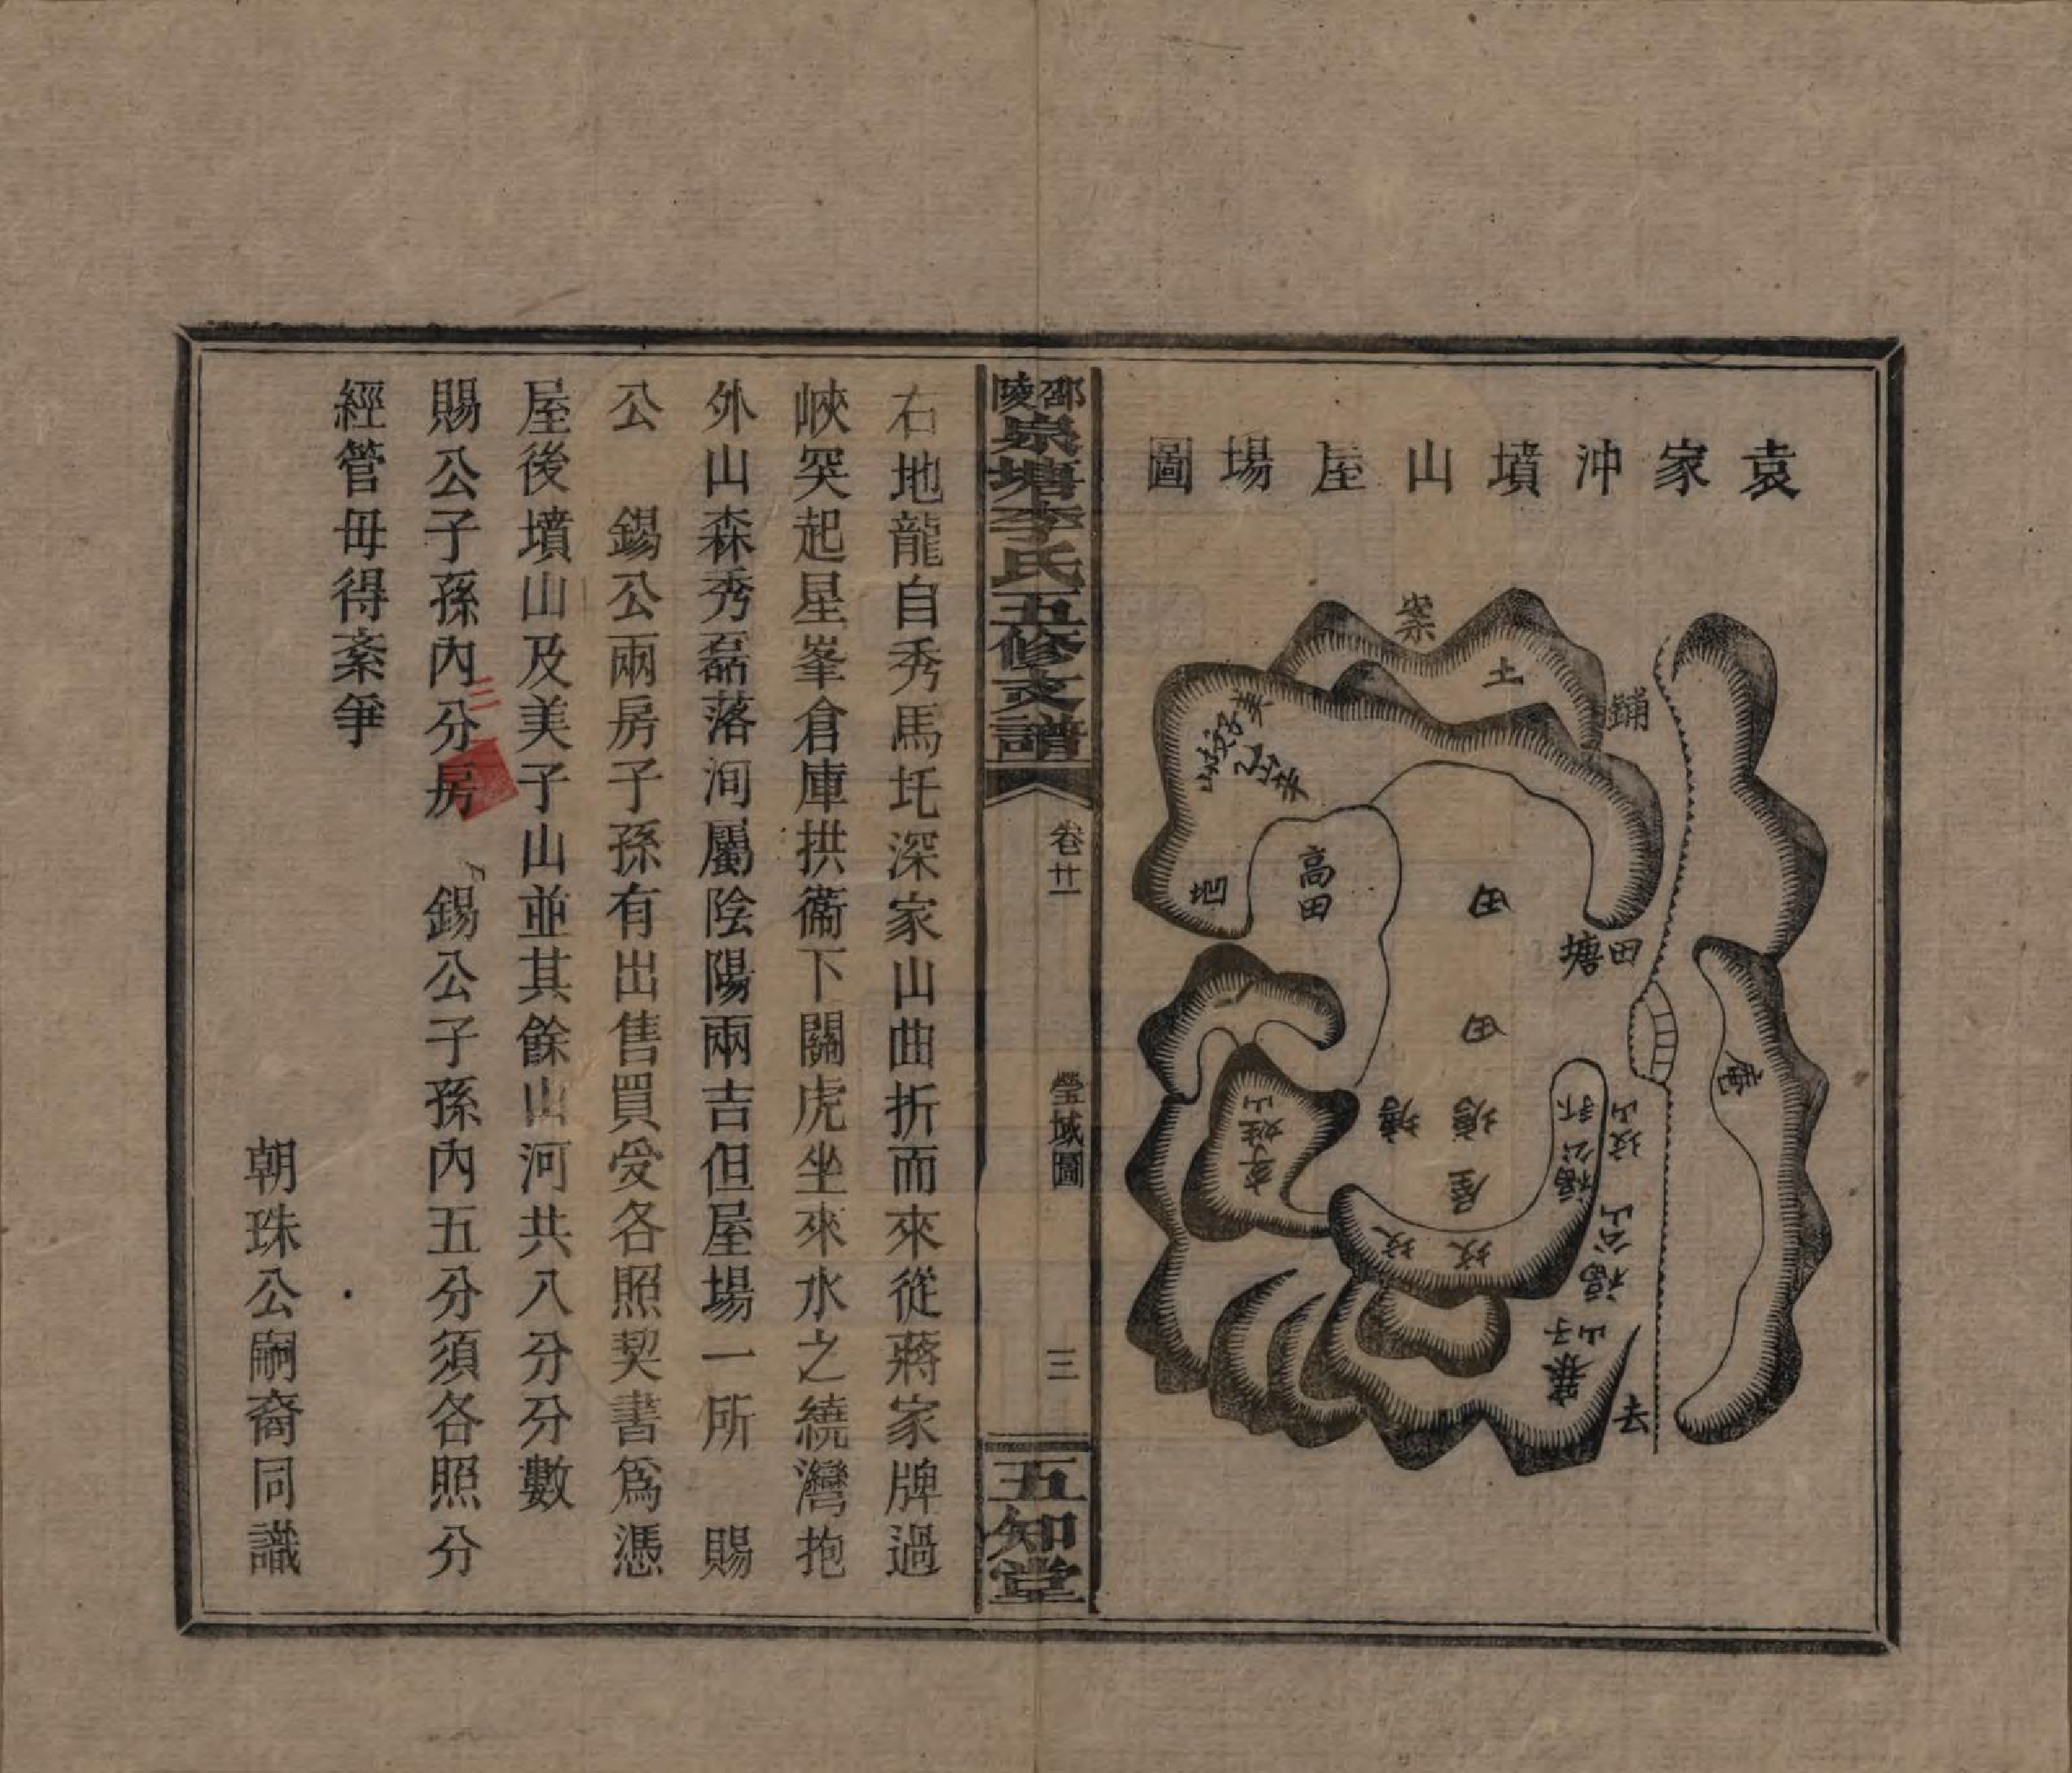 袁家沖墳山屋場圖
案
土
鋪
地
高田
田
塘田
田
庵
李姓山
塘
塘
屋
福公
坟山
福公山
坟
坟
山子
去
邵陵泉塘李氏五修支譜
卷廿一
塋域圖
三
五知堂
右地龍自秀馬圫深家山曲折而來從蔣家牌過
峽突起星峯倉庫拱衞下關虎坐來水之繞灣抱
外山森秀磊落洵屬陰陽兩吉但屋場一所　賜
公　錫公兩房子孫有出售買受各照契書爲憑
屋後墳山及美子山並其餘山河共八分分數
賜公子孫內三分房　錫公子孫內五分須各照分
經管毋得紊爭
朝珠公嗣裔同識